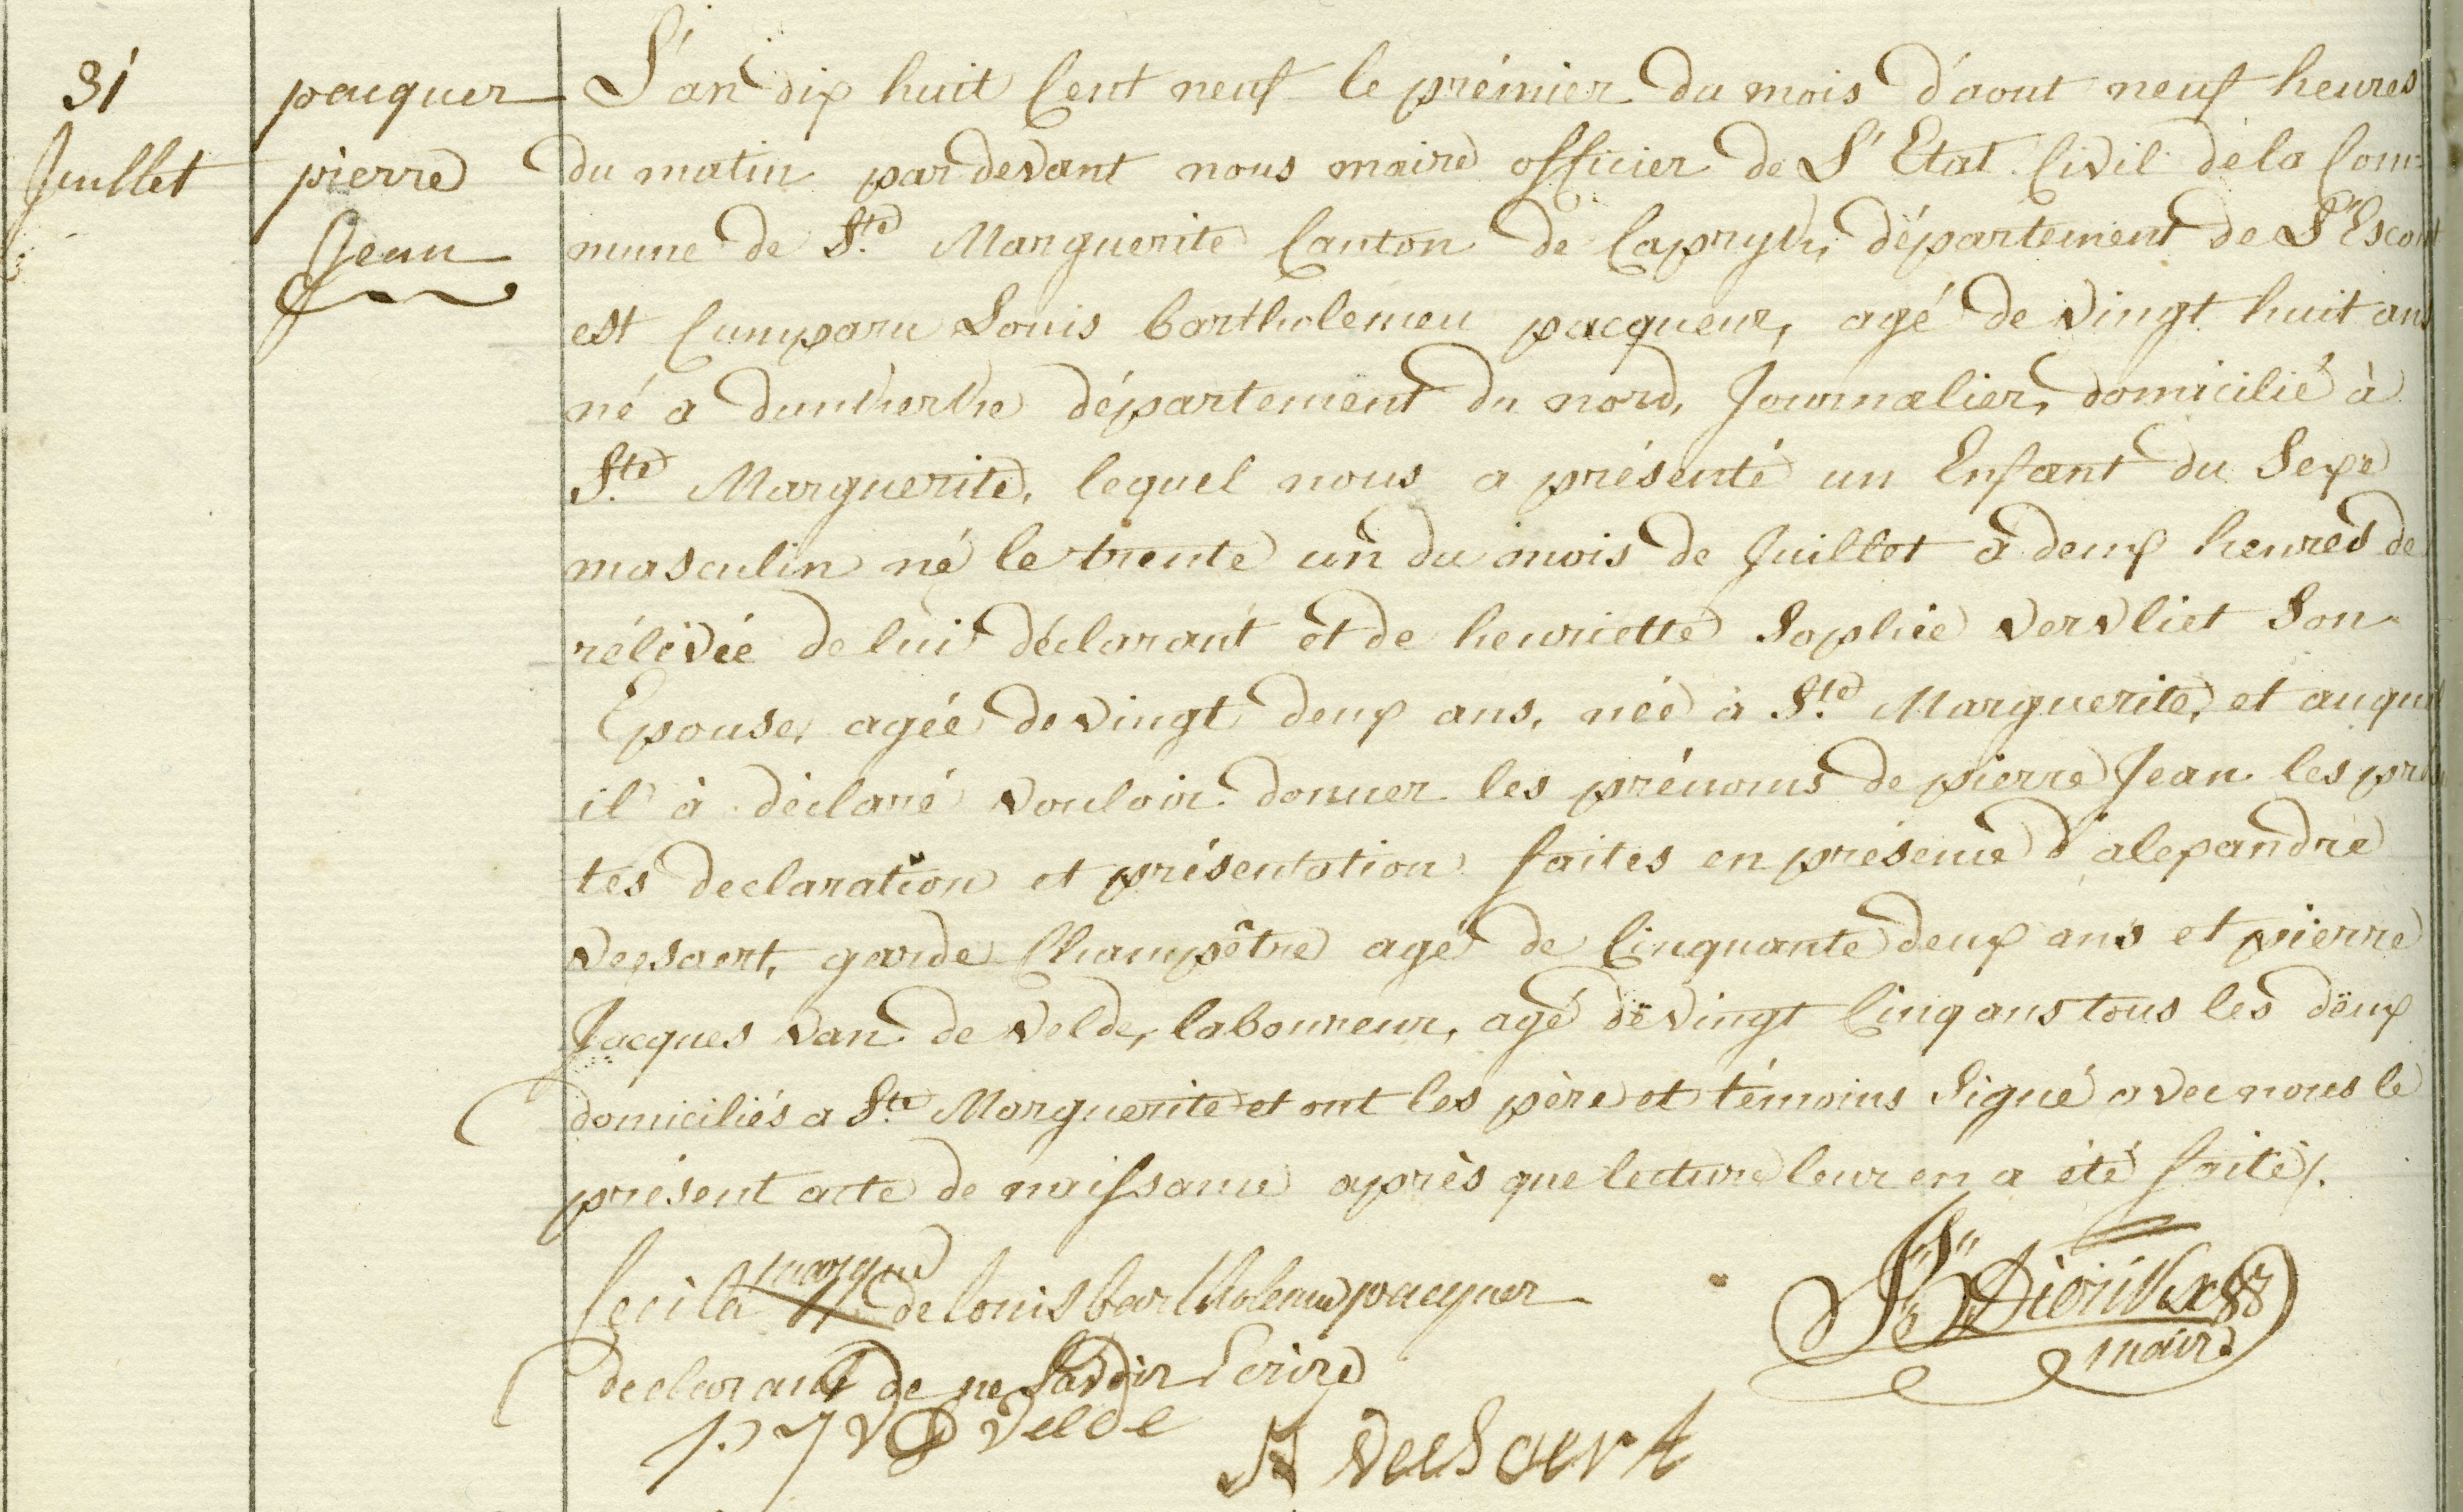 31
Juillet
pacquer
pierre
Jean
L'an dix huit Cent neuf le prémier du mois d'aout neuf heures
du matin par devant nous maire officier de L'Etat Civil de la Com=
mune de Ste Marguerite Canton de Capryk, département de L'Escaut
est Comparu Louis bartholemeu pacqueur, agé de vingt huit ans
né a dunkerke département du nord, Journalier, domicilié à
Ste Marguerite, lequel nous a présenté un Enfant du Sexe
masculin né le trente un du mois de Juillet à deux heures de
rélévée de lui déclarant et de henriette Sophie vervliet Son
Epouse, agée de vingt deux ans, née à Ste Marguerite, et auquel
il à déclaré vouloir donner les prénoms de pierre Jean les
tes declaration et présentation faites en présence d'alexandre
garde Champêtre agé de Cinquante deux ans et pierre
Jacques van de velde, laboureur, agé de vingt Cinq ans tous les deux
domiciliés a Ste Marguerite et ont les père et témoins Signé avec nous le
présent acte de naissance après que lecture leur en a été faite/.
Ceci la marque de louis bartholemeu pacquer
declarant de ne Savoir Ecrire
maire
p J V D Velde
A